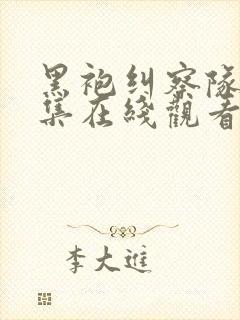 黑袍纠察队
集在綫觀看
李大進